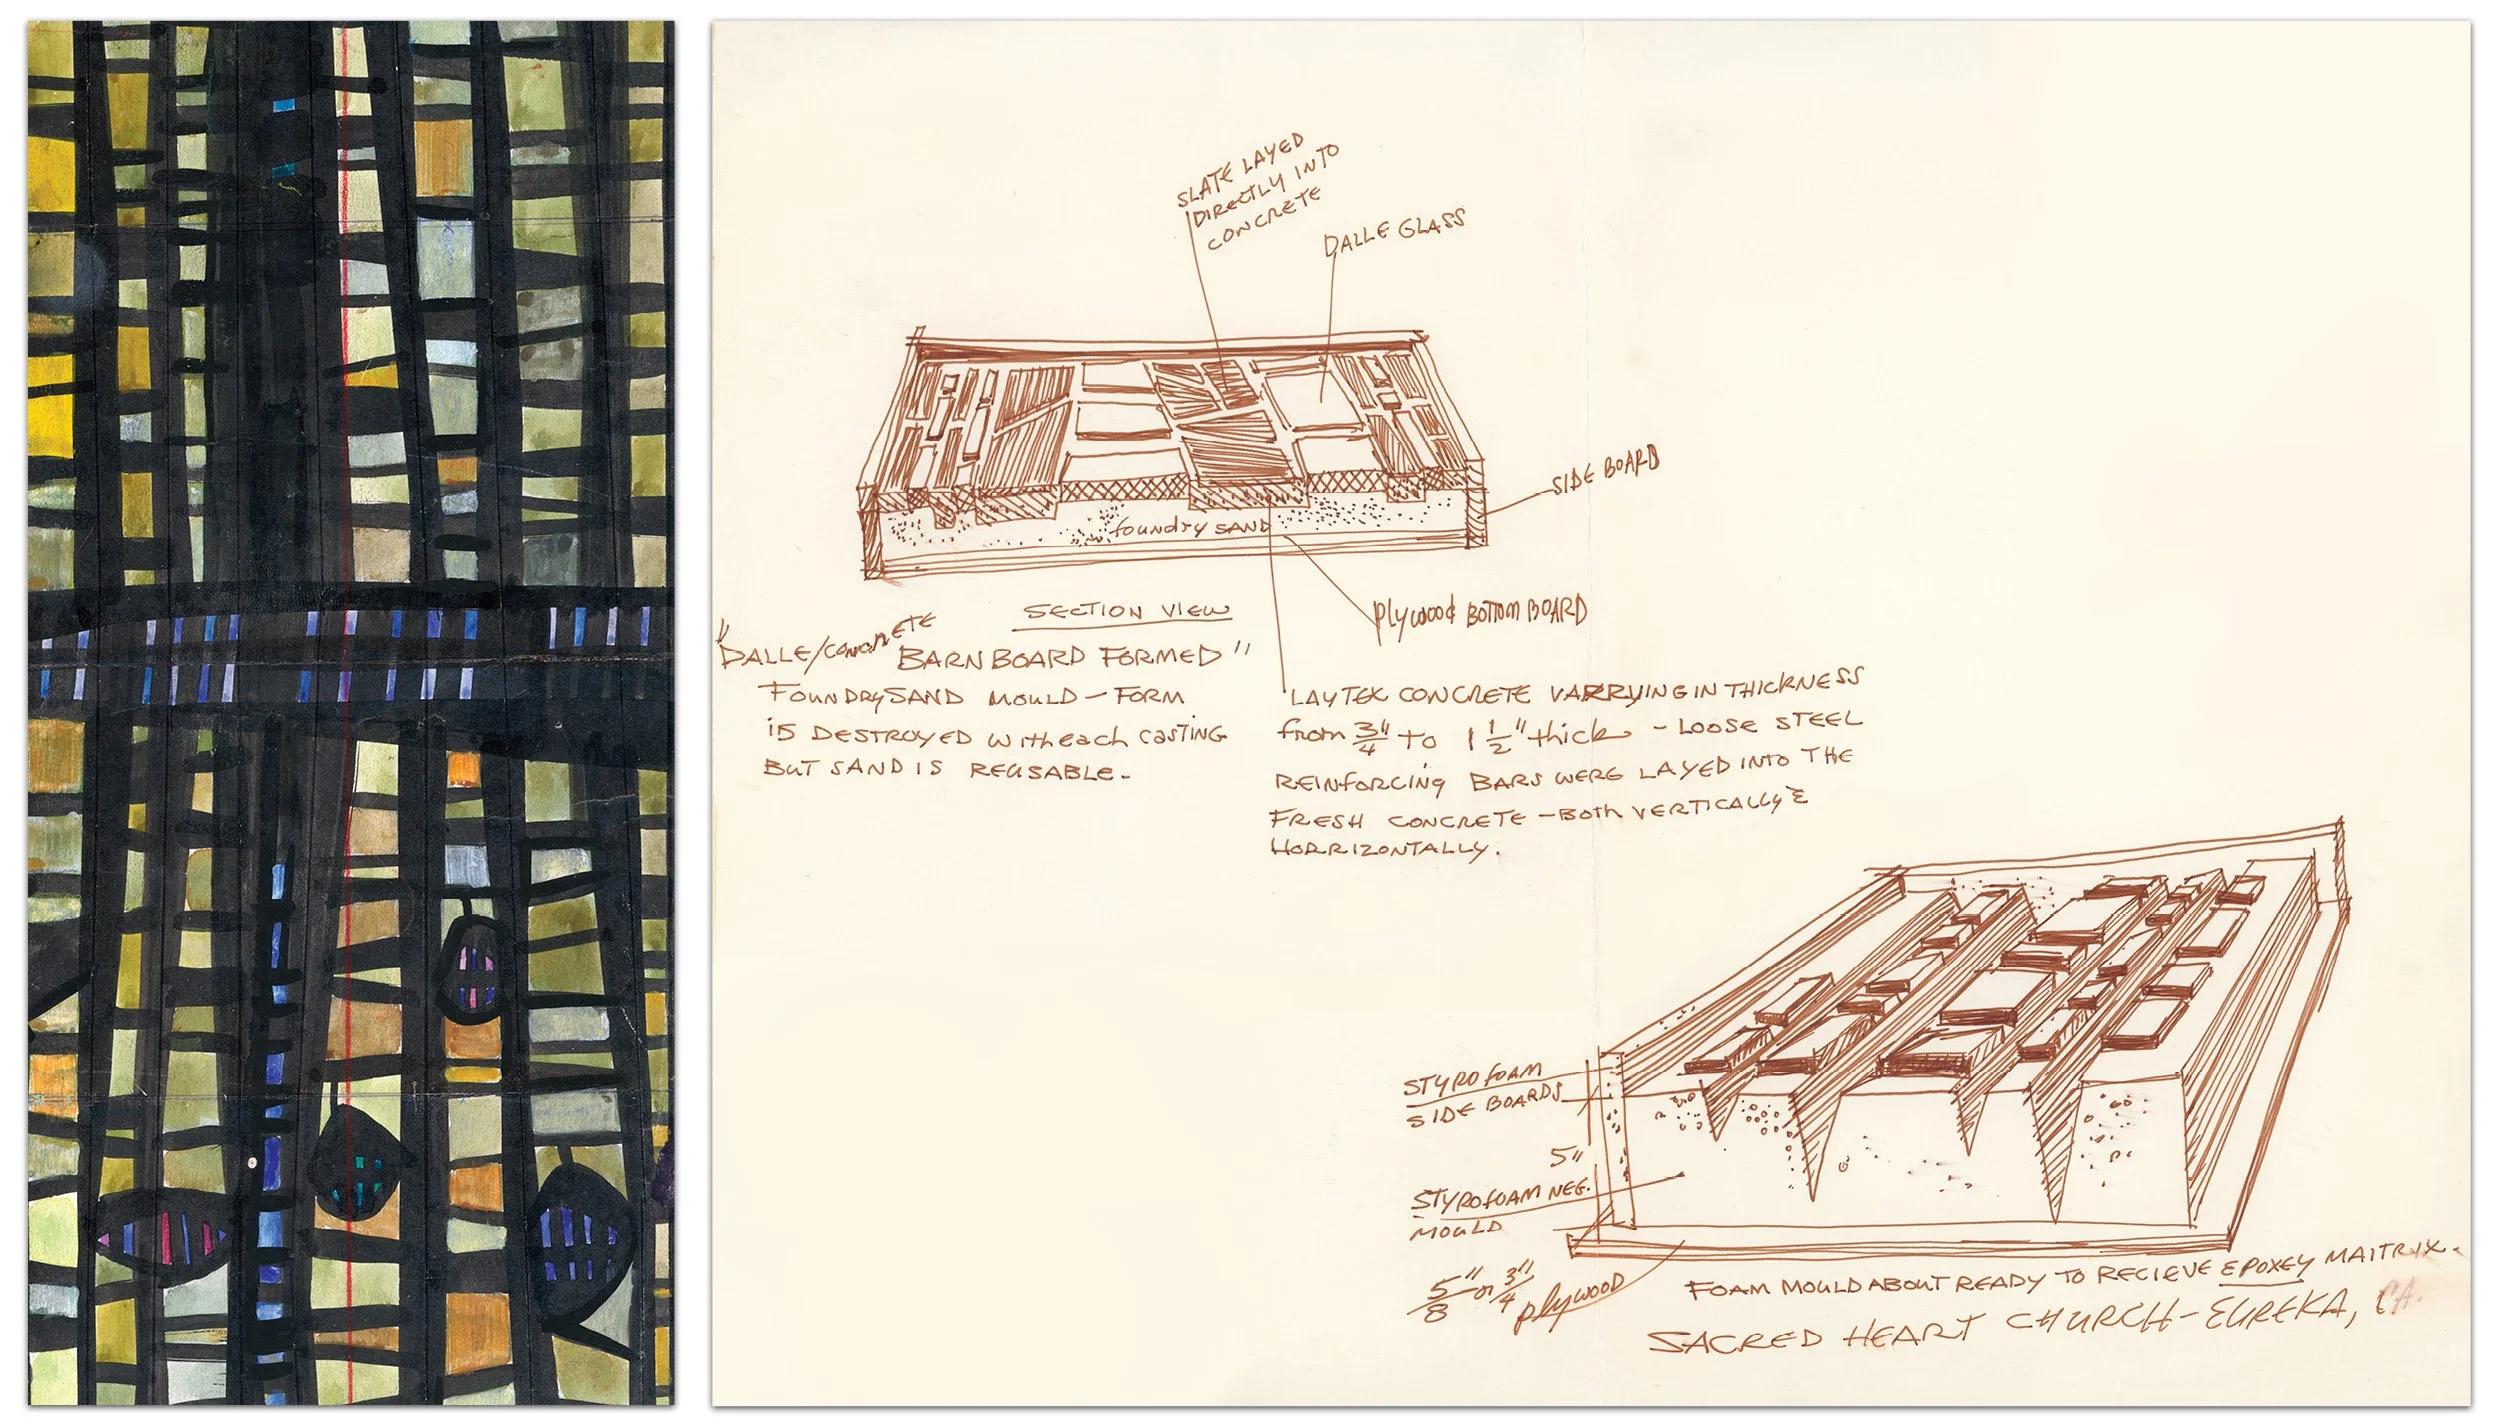 SLATE LAYED
DIRECTLY INTO
CONCRETE
DALLE GLASS
SIDE BOARD
foundry SAND
PLYWOOD BOTTOM BOARD
SECTION VIEW
"DALLE/CONCRETE BARNBOARD FORMED"
FOUNDRY SAND MOULD - FORM
IS DESTROYED with each CASTING
BUT SAND IS REUSABLE.
LAYTEX CONCRETE VARRYING IN THICKNESS
from 3/4" to 1 1/2" thick - LOOSE STEEL
REINFORCING BARS WERE LAYED INTO THE
FRESH CONCRETE - BOTH VERTICALLY &
HORRIZONTALLY.
STYROFOAM
SIDE BOARDS
5"
STYROFOAM NEG.
MOULD
5/8" or 3/4" plywood
FOAM MOULD ABOUT READY TO RECIEVE EPOXEY MAITRIX.
SACRED HEART CHURCH - EUREKA, CA.